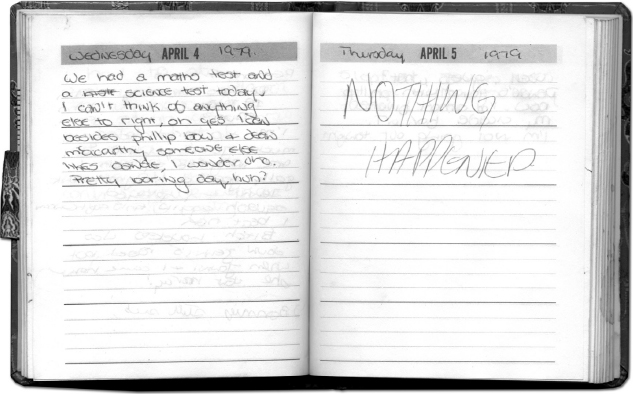 Wednesday APRIL 4 1979.
We had a maths test and
a science test today.
I can't think of anything
else to right, oh yes I can
besides phillip baw & dean
mccarthy someone else
likes danae, I wonder who.
Pretty boring day, huh?
Thursday APRIL 5 1979
NOTHING
HAPPENED.